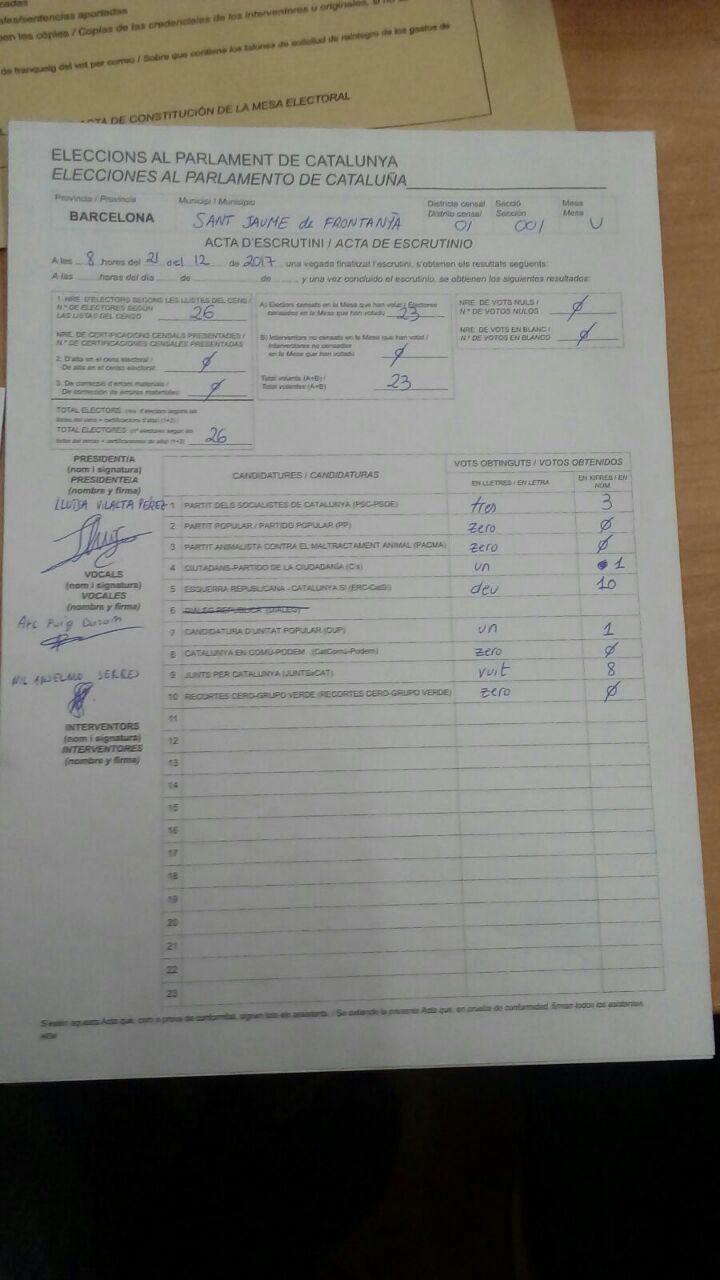 ales/sentencias aportadas
en les còpies / Copias de las credenciales de los interventores u originales, si no
de franqueig del vot per correo / Sobre que contiene los talones de solicitud de reintegro de los gastos de
ACTA DE CONSTITUCIÓN DE LA MESA ELECTORAL
ELECCIONS AL PARLAMENT DE CATALUNYA
ELECCIONES AL PARLAMENTO DE CATALUÑA
Província / Provincia Municipi / Municipio Districte censal Secció Mesa
Distrito censal Sección Mesa
BARCELONA SANT JAUME de FRONTANYÀ 01 001 U
ACTA D'ESCRUTINI / ACTA DE ESCRUTINIO
A les 8 hores del 21 del 12 de 2017, una vegada finalitzat l'escrutini, s'obtenen els resultats següents:
A las horas del día de de y una vez concluido el escrutinio, se obtienen los siguientes resultados:
1. NRE. D'ELECTORS SEGONS LES LLISTES DEL CENS /
N.º DE ELECTORES SEGÚN
LAS LISTAS DEL CENSO 26
NRE. DE CERTIFICACIONS CENSALS PRESENTADES /
N.º DE CERTIFICACIONES CENSALES PRESENTADAS
2. D'alta en el cens electoral /
De alta en el censo electoral: Ø
3. De correcció d'errors materials /
De corrección de errores materiales: Ø
TOTAL ELECTORS (nre. d'electors segons les
llistes del cens + certificacions d'alta) (1+2) /
TOTAL ELECTORES (nº electores según las
listas del censo + certificaciones de alta) (1+2) 26
A) Electors censats en la Mesa que han votat / Electores
censados en la Mesa que han votado 23
B) Interventors no censats en la Mesa que han votat /
Interventores no censados
en la Mesa que han votado Ø
Total votants (A+B) /
Total votantes (A+B) 23
NRE. DE VOTS NULS /
N.º DE VOTOS NULOS Ø
NRE. DE VOTS EN BLANC /
N.º DE VOTOS EN BLANCO Ø
PRESIDENT/A
(nom i signatura)
PRESIDENTE/A
(nombre y firma)
LLUÏSA VILALTA PÉREZ
VOCALS
(nom i signatura)
VOCALES
(nombre y firma)
Puig
NIL ANSELMO SERRES
INTERVENTORS
(nom i signatura)
INTERVENTORES
(nombre y firma)
CANDIDATURES / CANDIDATURAS VOTS OBTINGUTS / VOTOS OBTENIDOS
EN LLETRES / EN LETRA EN XIFRES / EN NÚM
1 PARTIT DELS SOCIALISTES DE CATALUNYA (PSC-PSOE) tres 3
2 PARTIT POPULAR / PARTIDO POPULAR (PP) zero Ø
3 PARTIT ANIMALISTA CONTRA EL MALTRACTAMENT ANIMAL (PACMA) zero Ø
4 CIUTADANS-PARTIDO DE LA CIUDADANÍA (C's) un 1
5 ESQUERRA REPUBLICANA - CATALUNYA SÍ (ERC-CatSí) deu 10
6 DIÀLEG REPUBLICÀ (DIÀLEG)
7 CANDIDATURA D'UNITAT POPULAR (CUP) un 1
8 CATALUNYA EN COMÚ-PODEM (CatComú-Podem) zero Ø
9 JUNTS PER CATALUNYA (JUNTSxCAT) vuit 8
10 RECORTES CERO-GRUPO VERDE (RECORTES CERO-GRUPO VERDE) zero Ø
11
12
13
14
15
16
17
18
19
20
21
22
23
S'estén aquesta Acta que, com a prova de conformitat, signen tots els assistents. / Se extiende la presente Acta que, en prueba de conformidad, firman todos los asistentes.